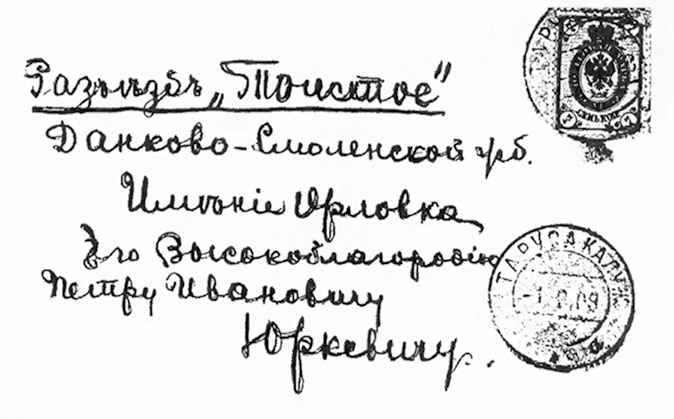 Разъѣздъ „Тоистое"
Данково-Смоленской
Имѣніе Орловка
Его Высокоблагородію
Петру Ивановичу
Юркевичу.
ТАРУСА КАЛУЖ
7 7
СЕМЬ КОП